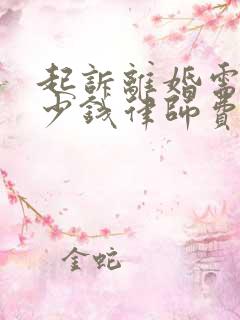 起訴離婚需
少錢律師費
金蛇